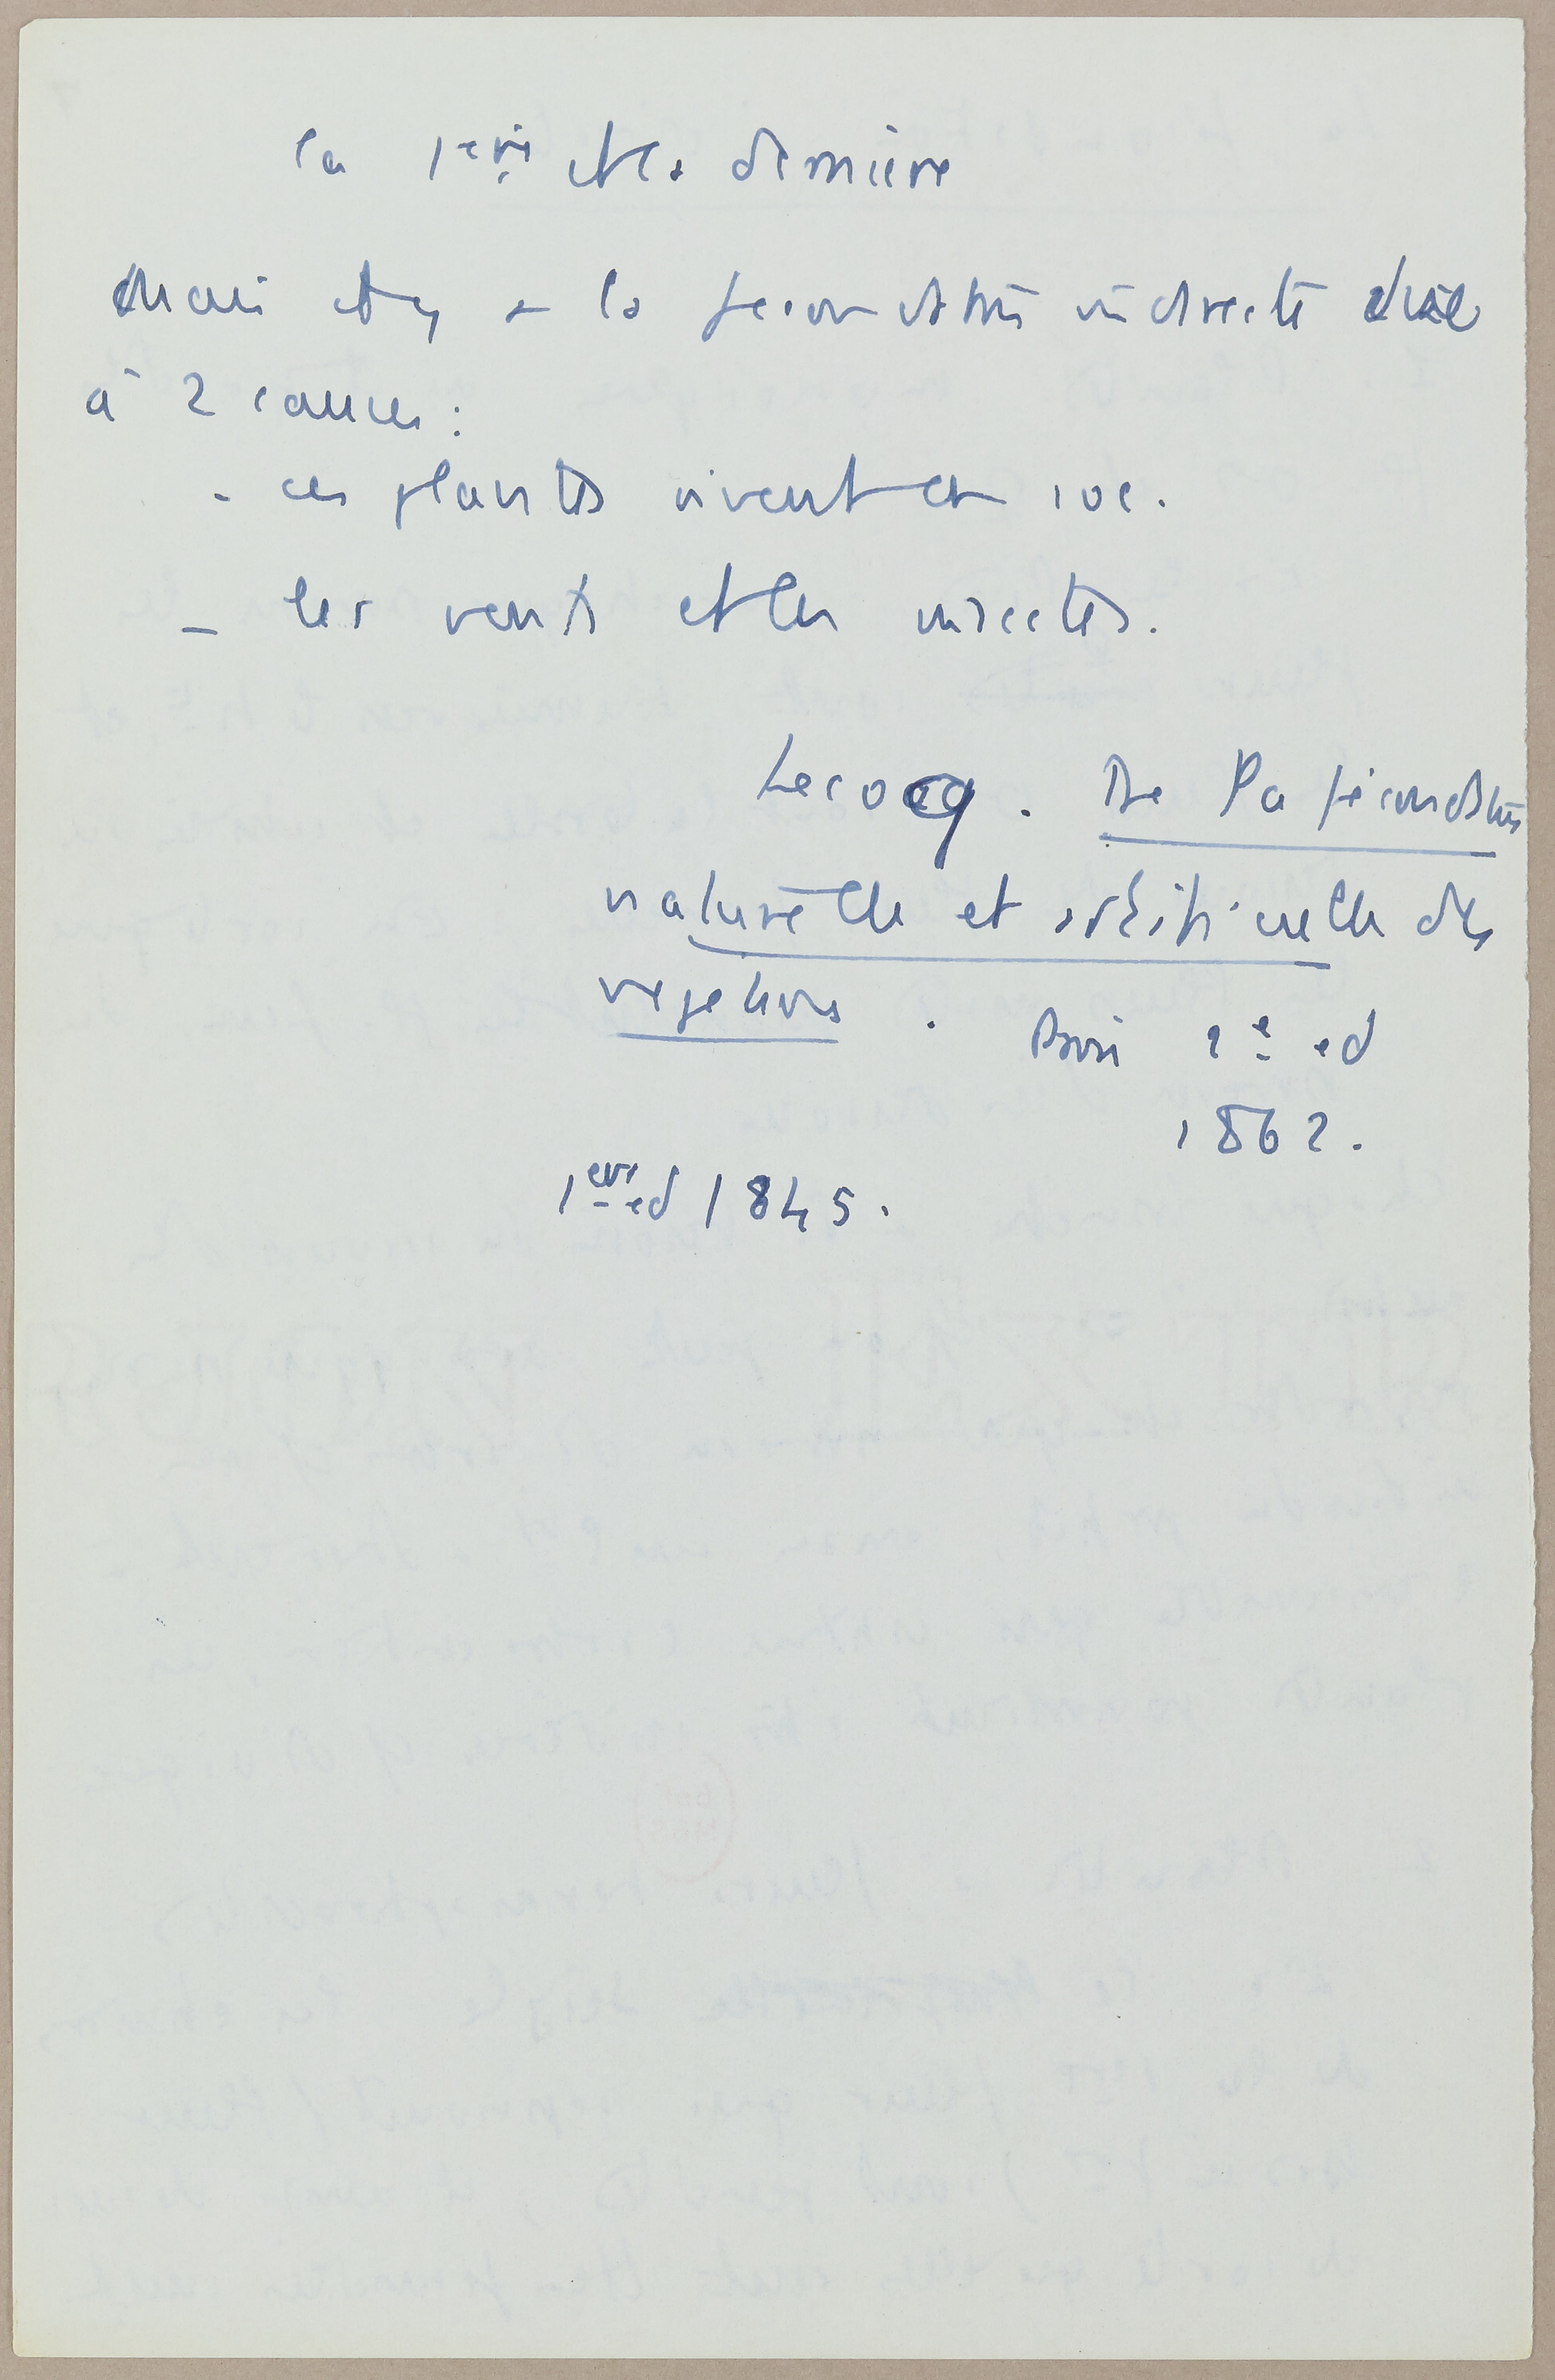 la 1ere et la dernière
Mais il y a la fécondation indirecte due
à 2 causes :
- ces plantes vivent en soc.
- les vents et les insectes.
Lecocq. De la fécondation
naturelle et artificielle des
végétaux . Paris 2e ed
1862.
1ere ed 1845.